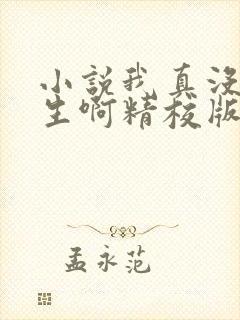 小説我真没
生啊精校版
孟永范